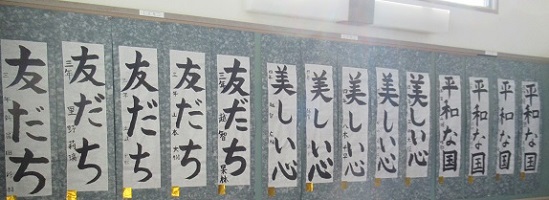 友だち
友だち
三年
友だち
友だち
友だち
三年
美しい心
美しい心
美しい心
美しい心
美しい心
平和な国
平和な国
平和な国
平和な国